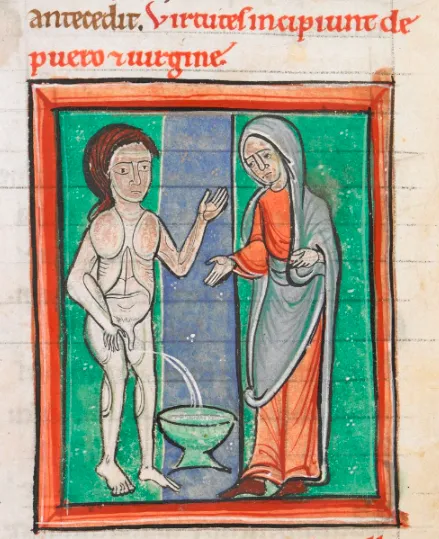 antecedit. Virtutes incipiunt de
puero ⁊ uirgine.